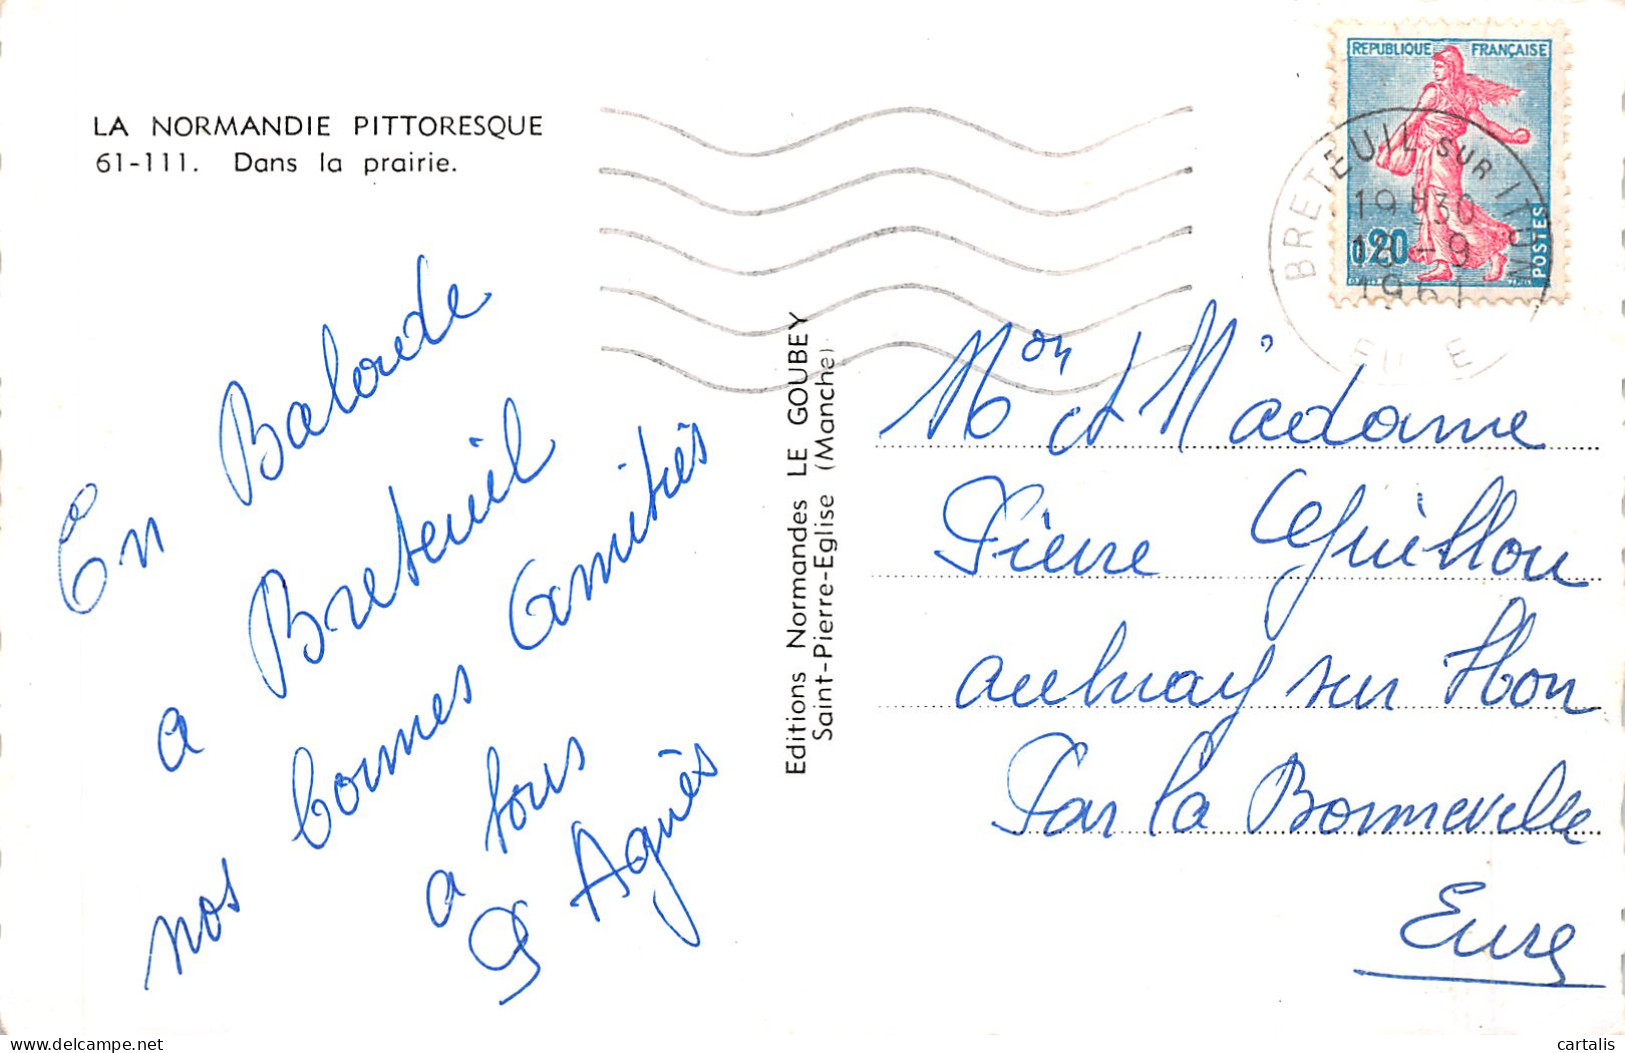 LA NORMANDIE PITTORESQUE
61-111. Dans la prairie.
REPUBLIQUE FRANÇAISE
0,20
POSTES
BRETEUIL SUR ITON
19H30
18-9
1961
EURE
En Balade
a Breteuil
nos bonnes amitiés
a tous
Agnès
Editions Normandes LE GOUBEY
Saint-Pierre-Eglise (Manche)
Mon et Madame
Pierre Leguillou
aulnay sur Iton
Par la Bonneville
Eure
cartalis